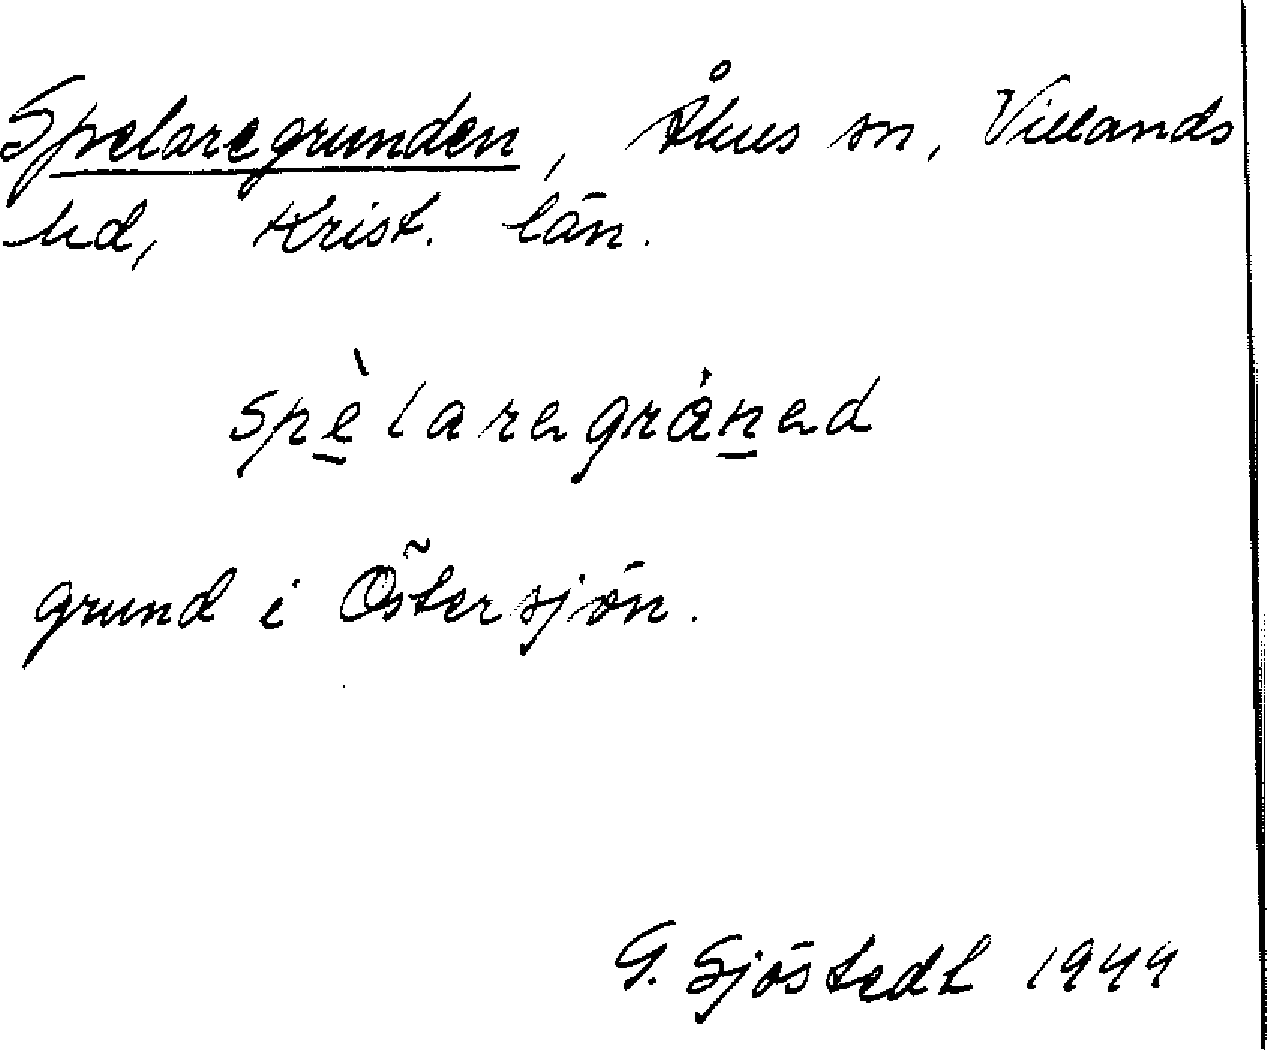 Spelaregrunden, Åhus sn, Villands
hd, Krist. län.
spèlaregrånad
grund i Östersjön.
G. Sjöstedt 1944